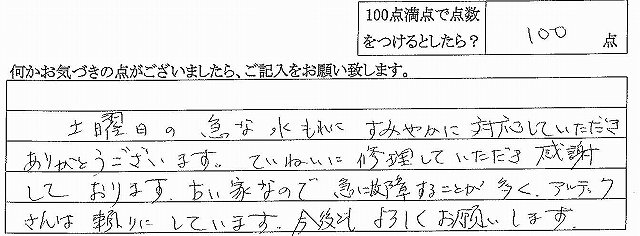 100点満点で点数
をつけるとしたら？
100 点
何かお気づきの点がございましたら、ご記入をお願い致します。
土曜日の急な水もれに すみやかに対応していただき
ありがとうございます。ていねいに修理していただき 感謝
して おります。古い家なので 急に故障することが多く、アルティク
さんは 頼りにしています。今後とも よろしくお願いします。